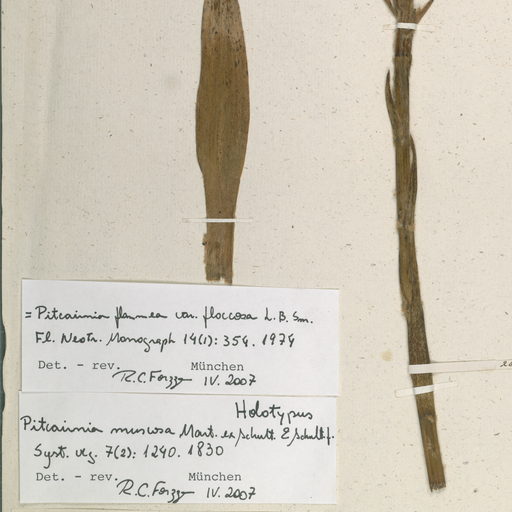 = Pitcairnia flammea var. floccosa L.B. Sm.
Fl. Neotr. Monograph 14(1): 354. 1974
Det. - rev. München
R.C. Forzza IV. 2007
Holotypus
Pitcairnia muscosa Mart. ex Schult. & Schult f.
Syst. veg. 7(2): 1240. 1830
Det. - rev. München
R.C. Forzza IV. 2007